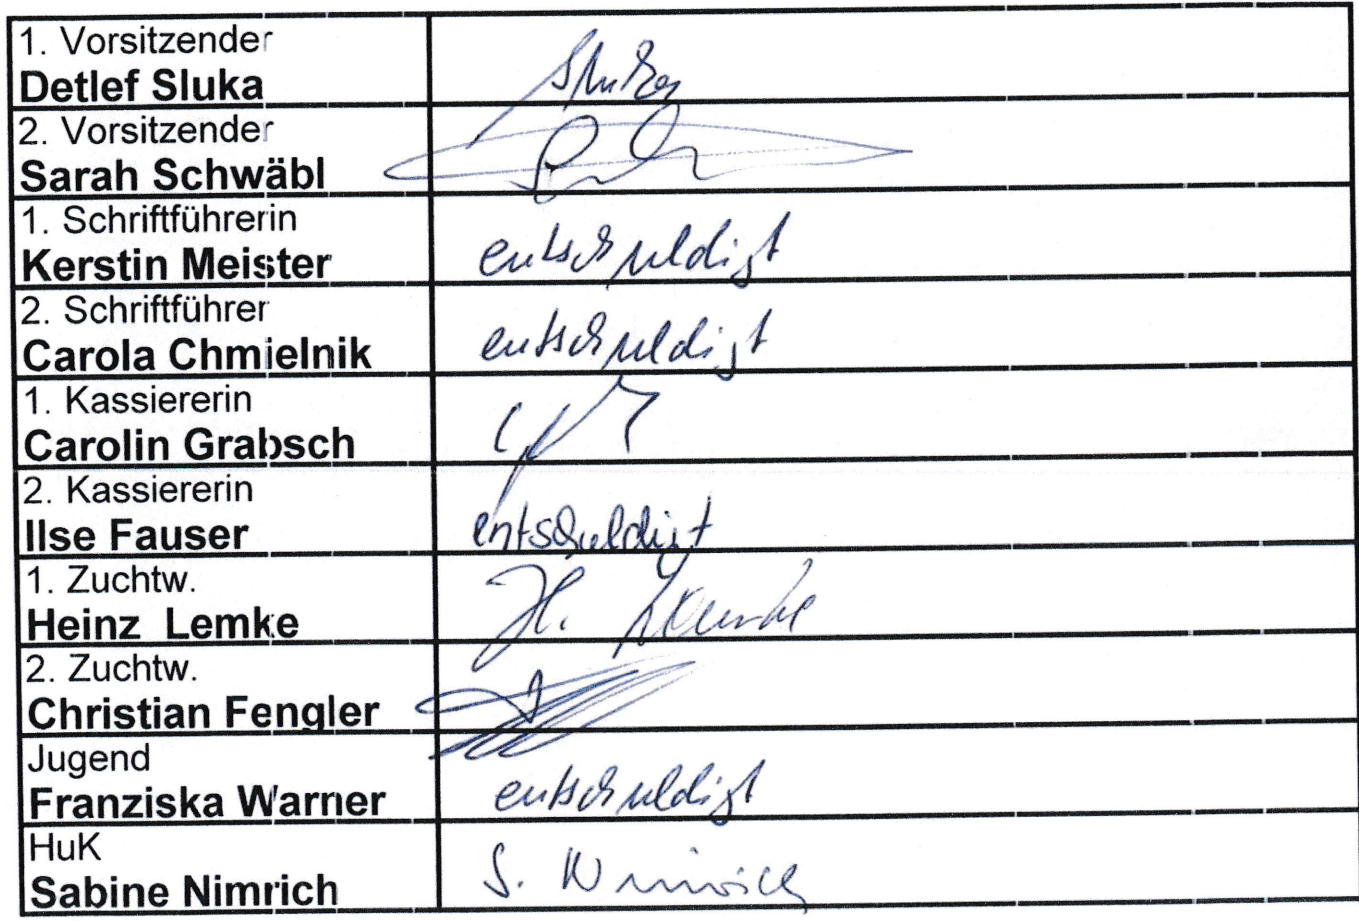 1. Vorsitzender
Detlef Sluka
Sluka
2. Vorsitzender
Sarah Schwäbl
1. Schriftführerin
Kerstin Meister
entschuldigt
2. Schriftführer
Carola Chmielnik
entschuldigt
1. Kassiererin
Carolin Grabsch
2. Kassiererin
Ilse Fauser
entschuldigt
1. Zuchtw.
Heinz Lemke
H. Lemke
2. Zuchtw.
Christian Fengler
Jugend
Franziska Warner
entschuldigt
HuK
Sabine Nimrich
S. Nimrich